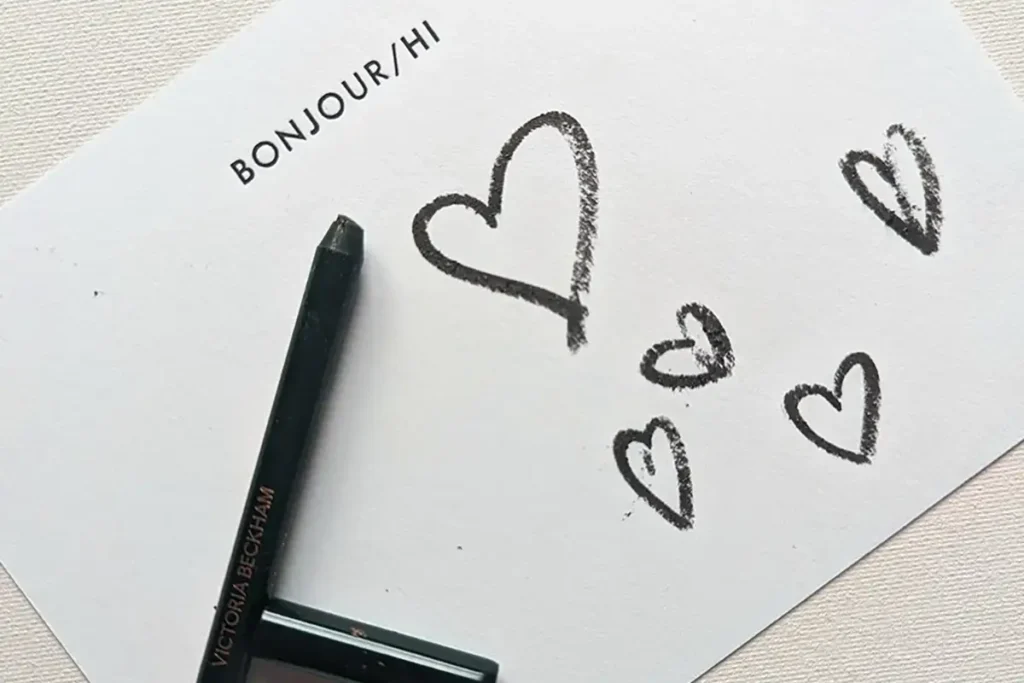 BONJOUR/HI
VICTORIA BECKHAM